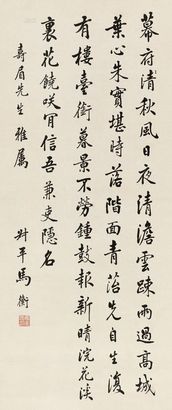 幕府清秋風日夜清澹雲疎雨過高城
葉心朱實堪時落階面青苔先自生復
有樓臺銜暮景不勞鍾鼓報新晴浣花溪
裏花饒咲肯信吾兼吏隱名
壽眉先生雅屬
叔平馬衡